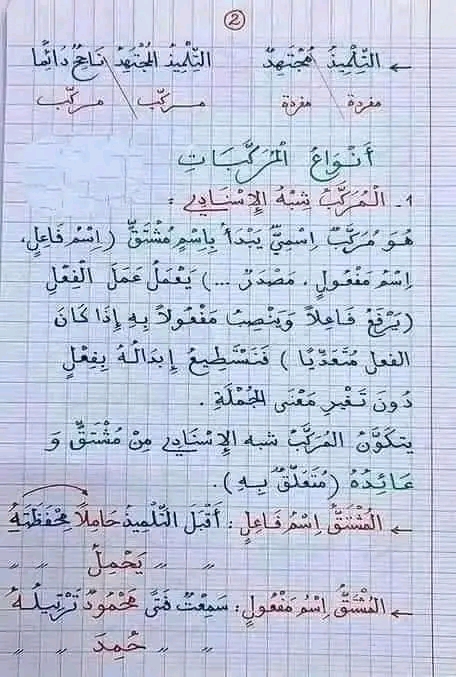 2
← التِّلْمِيذُ مُجْتَهِدٌ \ التِّلْمِيذُ المُجْتَهِدُ \ نَاجِحٌ دَائِمًا
مفردة \ مفردة مركّب \ مركّب
أَنْوَاعُ المُرَكَّبَاتِ
1- المُرَكَّبُ شِبْهُ الإِسْنَادِي :
هُوَ مُرَكَّبٌ اِسْمِيٌّ يَبْدَأُ بِاِسْمٍ مُشْتَقٍّ (اِسْمُ فَاعِلٍ،
اِسْمُ مَفْعُولٍ، مَصْدَرٌ ...) يَعْمَلُ عَمَلَ الفِعْلِ
(يَرْفَعُ فَاعِلاً وَيَنْصِبُ مَفْعُولاً بِهِ إِذَا كَانَ
الفعل مُتَعَدِّيًا) فَنَسْتَطِيعُ إِبْدَالَهُ بِفِعْلٍ
دُونَ تَغْيرِ مَعْنَى الجُمْلَةِ.
يتكَوَّنُ المُرَكَّبُ شبه الإِسْنَادِي مِنْ مُشْتَقٍّ وَ
عَائِدُهُ (مُتَعَلّقٌ بِهِ).
← المُشْتَقُّ اِسْمُ فَاعِلٍ: أَقْبَلَ التِّلْمِيذُ حَامِلاً مِحْفَظَتَهُ
" " يَحْمِلُ " "
← المُشْتَقُّ اِسْمُ مَفْعُولٍ: سَمِعْتُ فَتًى مَحْمُودٌ تَرْتِيلُهُ
" " حُمِدَ " "